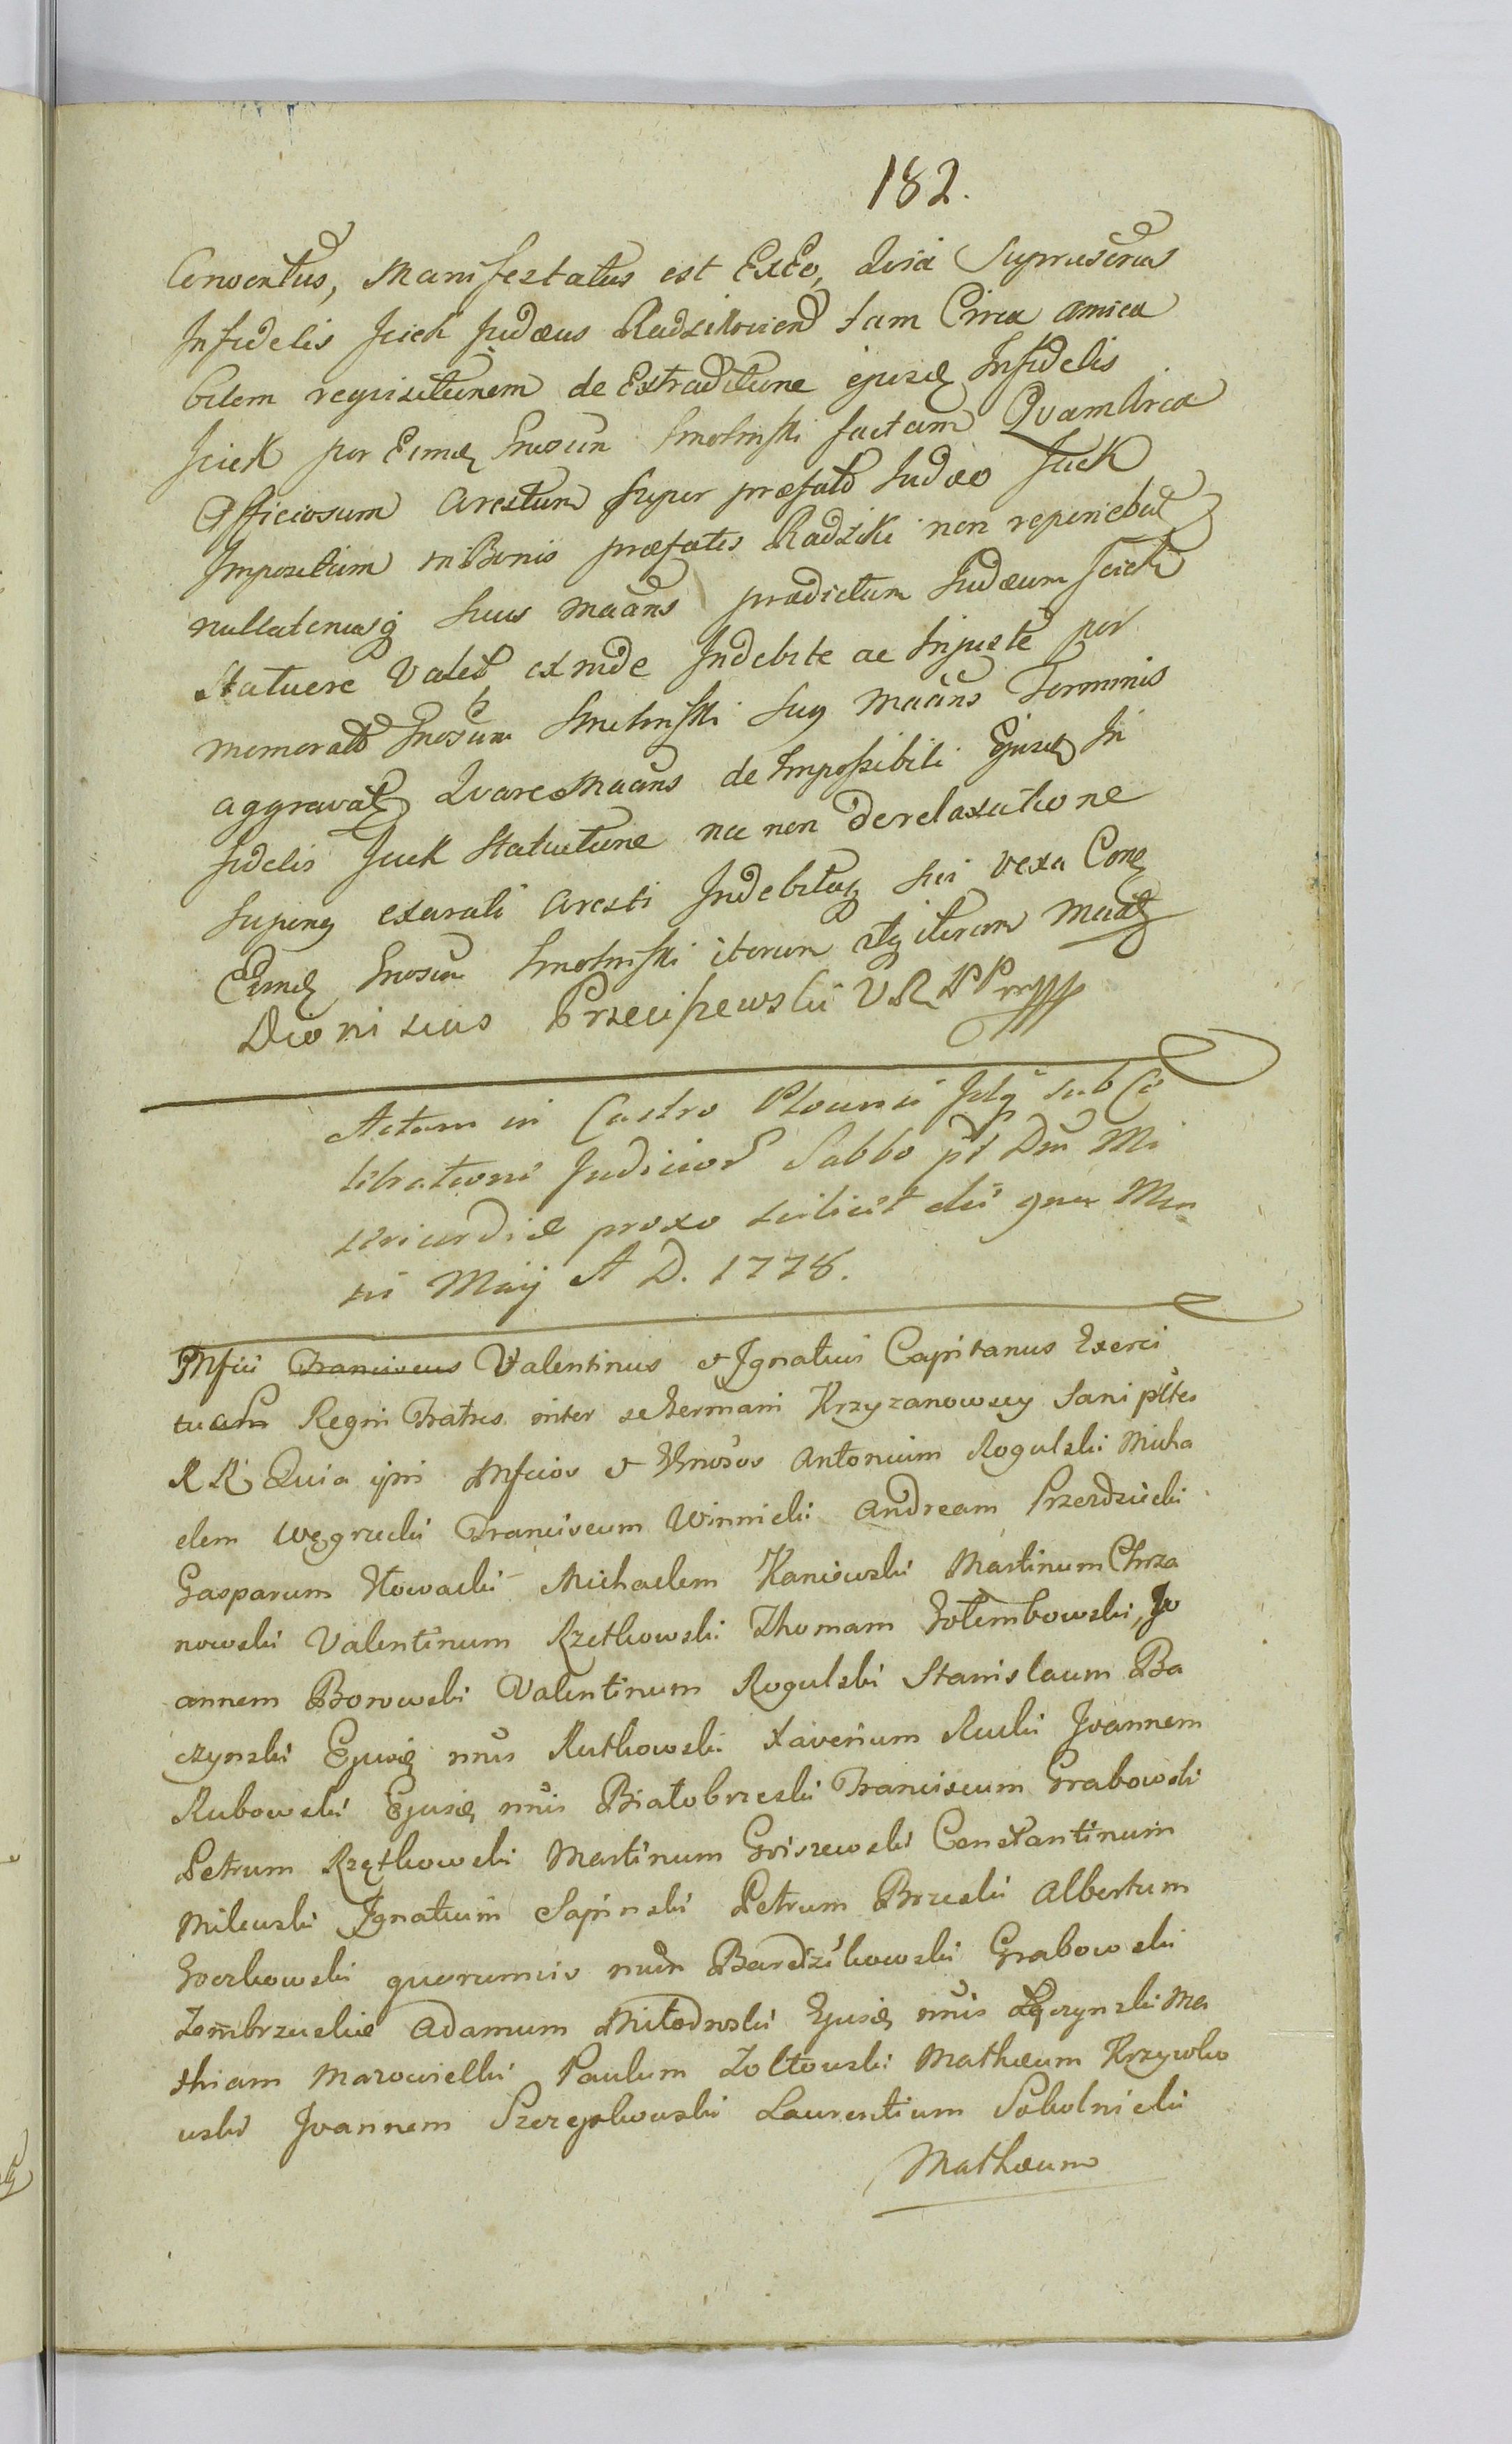 182.
Conventus, Manifestatus est Ex Eo, Quia Supruscrius
Infidelis Jcick Judæus Radzikoviens tam Circa amica
bilem requisitionem de Extraditione ejusd Infidelis
Jcick per Eumd Gnosum Smolinski factam Quam Circa
Officiosum Arestum super præfato Judæo Jcick
Impositum in Bonis præfatis Radziki non reperiebat
nullatenusq suus Maans prædictum Judæum Jcick
Statuere Valet exinde Indebite ac Injuste per
memorato Gnosum Smolinski suq Maans Terminis
aggravat Quare Maans de Impossibili Ejusd In
fidelis Jcick Statuitione nec non de relaxatione
superq exarati Aresti Indebitaq sui vexa Cong
Eumd Gnosum Smolinski iterum atq iterum Maatq
Dionisius Przeciszewski V R P P mpp
Actum in Castro Plocensi Ipsq sub Ce
lebratione Judicior Sabbo pt Dm Mi
sericordiæ proxo scilicet die 9na Men
sis Maij A D. 1778.
Mfici Franciscus Valentinus et Ignatius Capitanus Exerci
tuum Regni Fratres inter se Germani Krzyzanowscy Sani pltes
R R Quia ipsi Mficos et Gnosos Antonium Rogulski Micha
elem Węgrzecki Franciscum Winnicki Andream Przerdziecki
Gasparum Nowacki Michaelem Kaniewski Martinum Chrza
nowski Valentinum Rzetkowski Thomam Gołembowski, Jo
annem Borowski Valentinum Rogulski Stanislaum Ba
czynski Ejusd nnis Rutkowski Xaverium Rucki Joannem
Rubowski Ejusd nnis Białobrzeski Franciscum Grabowski
Petrum Rzętkowski Martinum Goiszewski Constantinum
Milewski Ignatium Sapinski Petrum Brzeski Albertum
Gorkowski quorumvis nnm Bardzikowski Grabowski
Zembrzuskie Adamum Miłodroski Ejusd nnis Łączynski Ma
thiam Marowielki Paulum Zołtowski Mathæum Krzywko
wski Joannem Szczepkowski Laurentium Sokolnicki
Mathæum